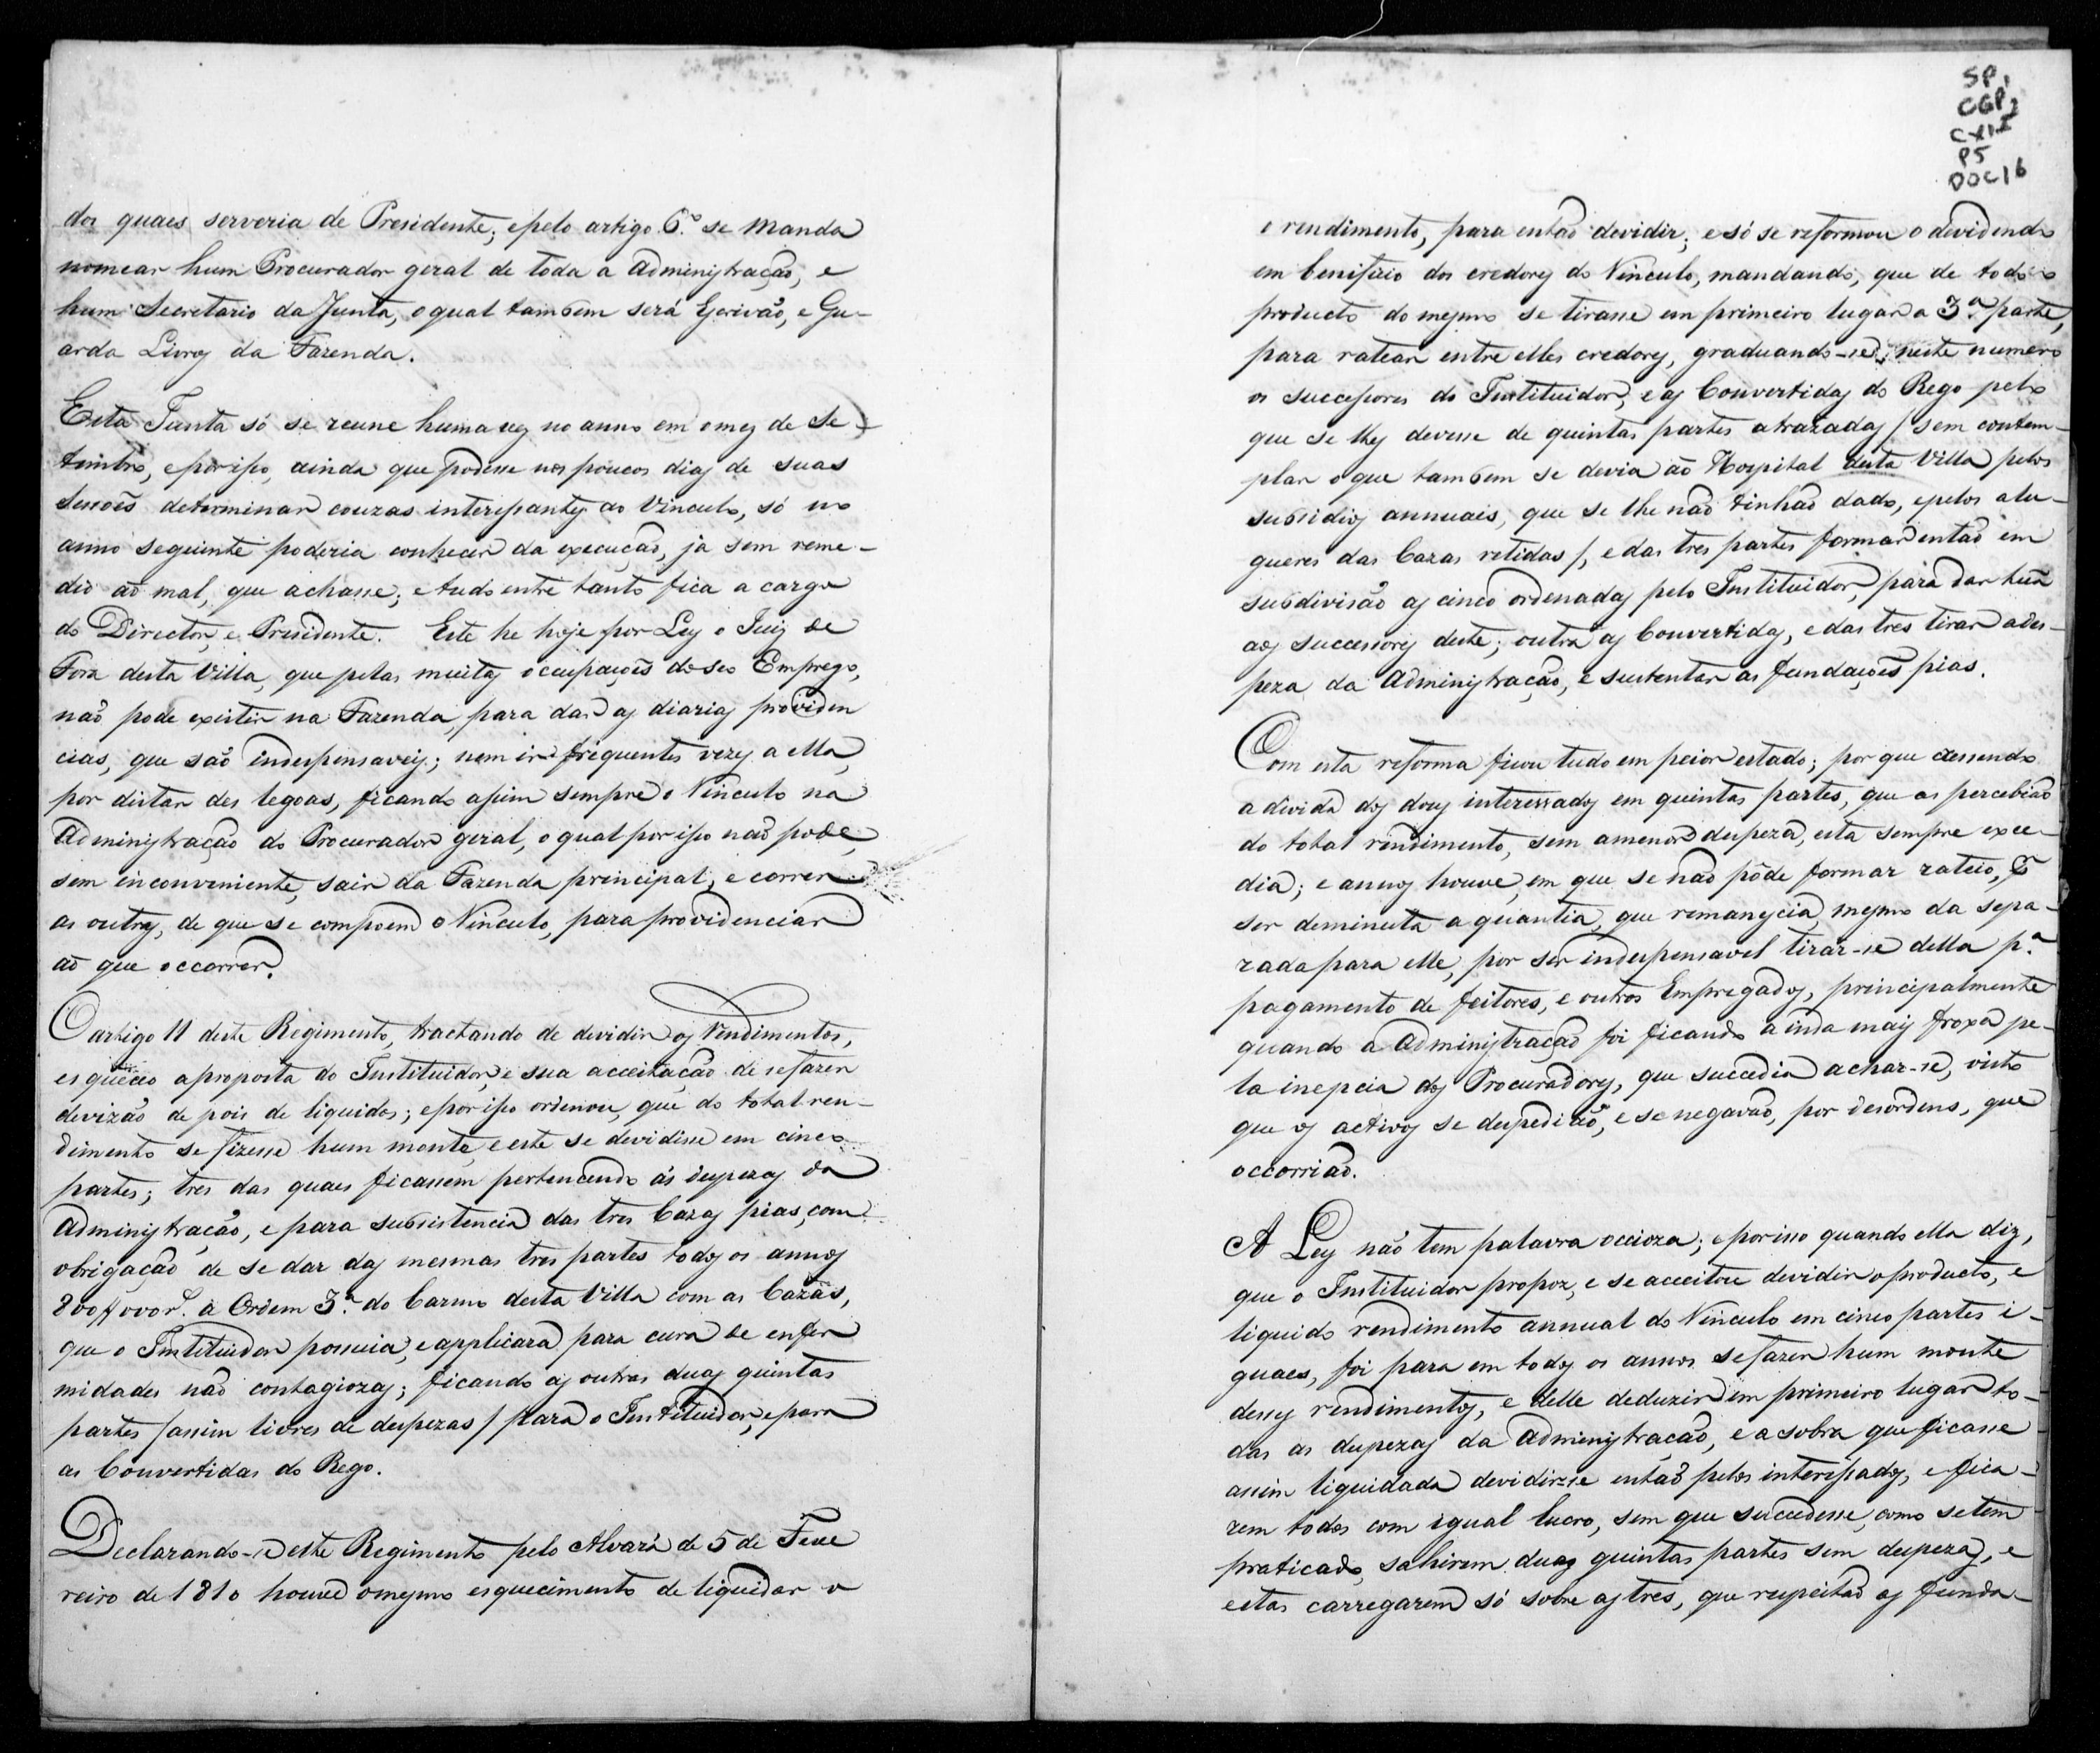 dos quaes serveria de Presidente; epelo artigo 6.º se Manda
nomear hum Procurador geral de toda a Administração, e
hum Secretario da Junta, oqual tambem será Escrivão, e Gu-
arda Livros da Fazenda.
Esta Junta só se reune huma vez no anno em o mez de Se-
tembro, eporisso, ainda que podesse nos poucos dias de suas
Sessoẽs determinar couzas interessantes ao Vinculo, só no
anno seguinte poderia conhecer da execução, ja sem reme-
dio aõ mal, que achasse; etudo entre tanto fica a cargo
do Director, e Presidente. Este he hoje por Ley o Juiz de
Fora desta Villa, que pelas muitas occupaçoẽs do seo Emprego,
naõ pode existir na Fazenda, para dar as diarias providen
cias, que saõ indespensaveis; nem ir frequentes vezes a ella,
por distar des legoas, ficando assim sempre o Vinculo na
Administração do Procurador geral, oqual porisso naõ pode,
sem inconveniente, sair da Fazenda principal, e correr
as outras, de que se compoem o Vinculo, para providenciar
aõ que occorrer.
O artigo 11 deste Regimento, tractando de devidir os Rendimentos,
esqueceo aproposta do Instituidor, e sua acceitação de sefazer
devizaõ de pois de liquidos; eporisso ordenou, que do total ren-
dimento se fizesse hum monte, e este se devidisse em cinco
partes; tres das quaes ficassem pertencendo ás despezas da
Administração, e para subsistencia das tres Cazas pias, com
obrigaçaõ de se dar das mesmas tres partes todos os annos
800//000 rs. a Ordem 3.ª do Carmo desta Villa com as Cazas,
que o Instituidor possuia, e applicara para cura de enfer
midades naõ contagiozas; ficando as outras duas quintas
partes /assim livres de despezas/ para o Instituidor, epara
as Convertidas do Rego.
Declarando-se este Regimento pelo Alvará de 5 de Feve
reiro de 1810 houve omesmo esquecimento de liquidar o
SP,
CGP,
CX1
P5
DOC16
o rendimento, para entaõ devidir; e só se reformou o devidendo
em beneficio dos credores do Vinculo, mandando, que de todo o
producto do mesmo se tirasse em primeiro lugar a 3.ª parte,
para ratear entre elles credores, graduando-se neste numero
os successores do Instituidor, e as Convertidas do Rego pelo
que se lhes devesse de quintas partes atrazadas / sem contem-
plar oque tambem se devia aõ Hospital desta Villa pelos
subsidios annuaes, que se lhe naõ tinhaõ dado, epelos alu-
gueres das Cazas retidas /, e das tres partes formar entaõ em
subdivisaõ as cinco ordenadas pelo Instituidor, para dar huã
aos successores deste; outra as Convertidas, e das tres tirar ades-
peza da Administração, e sustentar as fundaçoẽs pias.
Com esta reforma ficou tudo em peior estado; por que cessendo
a divida dos dous interessados em quintas partes, que as percebiaõ
do total rendimento, sem amenor despeza, esta sempre exce-
dia; e annos houve, em que se naõ pôde formar rateio, p.
ser deminuta a quantia, que remanescia, mesmo da sepa-
rada para elle, por ser indespensavel tirar-se della p.ª
pagamento de feitores, e outros Empregados, principalmente
quando a Administração foi ficando ainda mais froxa pe-
la inepcia dos Procuradores, que succedia achar-se, visto
que os activos se despediaõ, e se negavaõ, por desordens, que
occorriaõ.
A Ley naõ tem palavra occioza; eporisso quando ella diz,
que o Instituidor propoz, e se acceitou devidir oproducto, e
liquido rendimento annual do Vinculo em cinco partes i-
guaes, foi para em todos os annos sefazer hum monte
desses rendimentos, e delle deduzir em primeiro lugar to-
das as despezas da Administração, e a sobra que ficasse
assim liquidada devidirse entaõ pelos interessados, e fica-
rem todos com igual lucro, sem que succedesse, como setem
praticado, sahirem duas quintas partes sem despeza, e
estas carregarem só sobre as tres, que respeitaõ as funda-